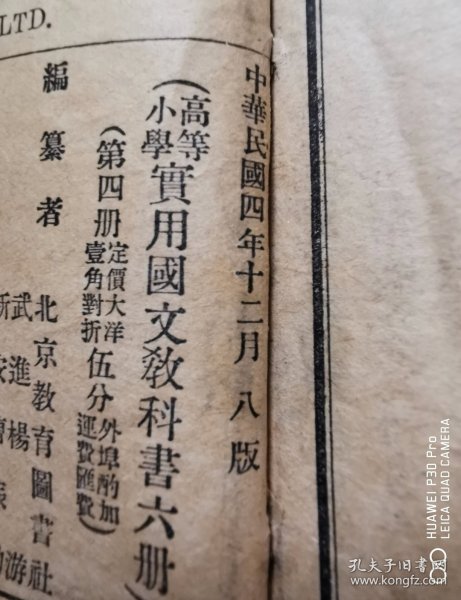 LTD.
中華民國四年十二月八版
(高等小學實用國文教科書六册)
(第四册定價大洋壹角對折伍分外埠酌加運費匯費)
編纂者
北京教育圖書社
武進楊
游
HUAWEI P30 Pro
LEICA QUAD CAMERA
孔夫子旧书网
www.kongfz.com